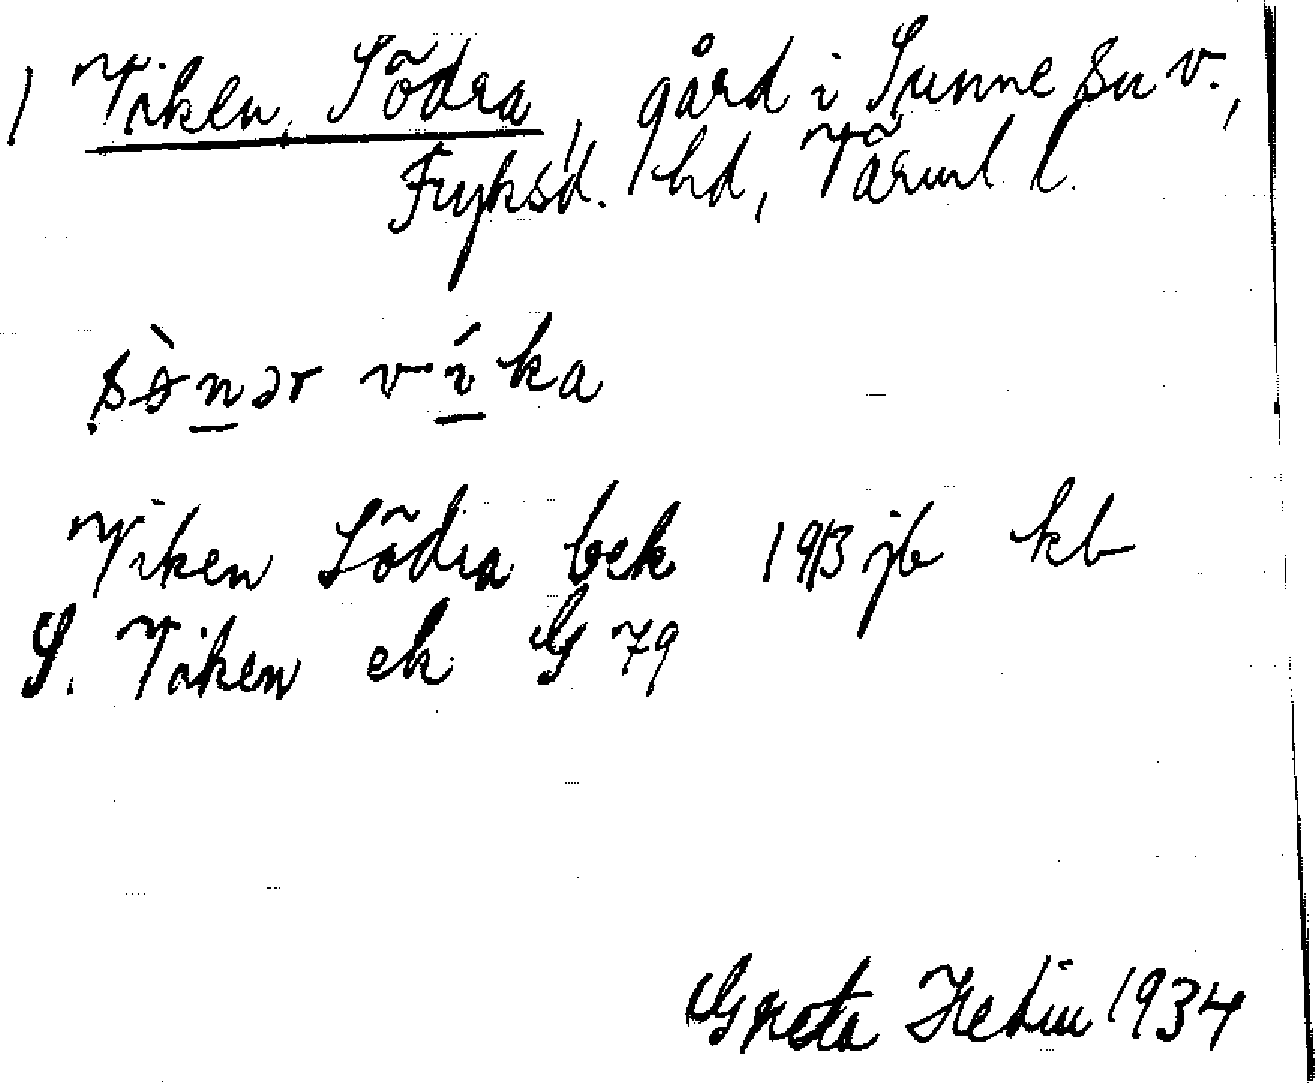 1 Viken, Södra, gård i Sunne sn v.,
Fryksd. hd, Värml l.
sø̀nər víka
Viken Södra bek 1913 jb kb
S. Viken ek G 79
Greta Hedin 1934